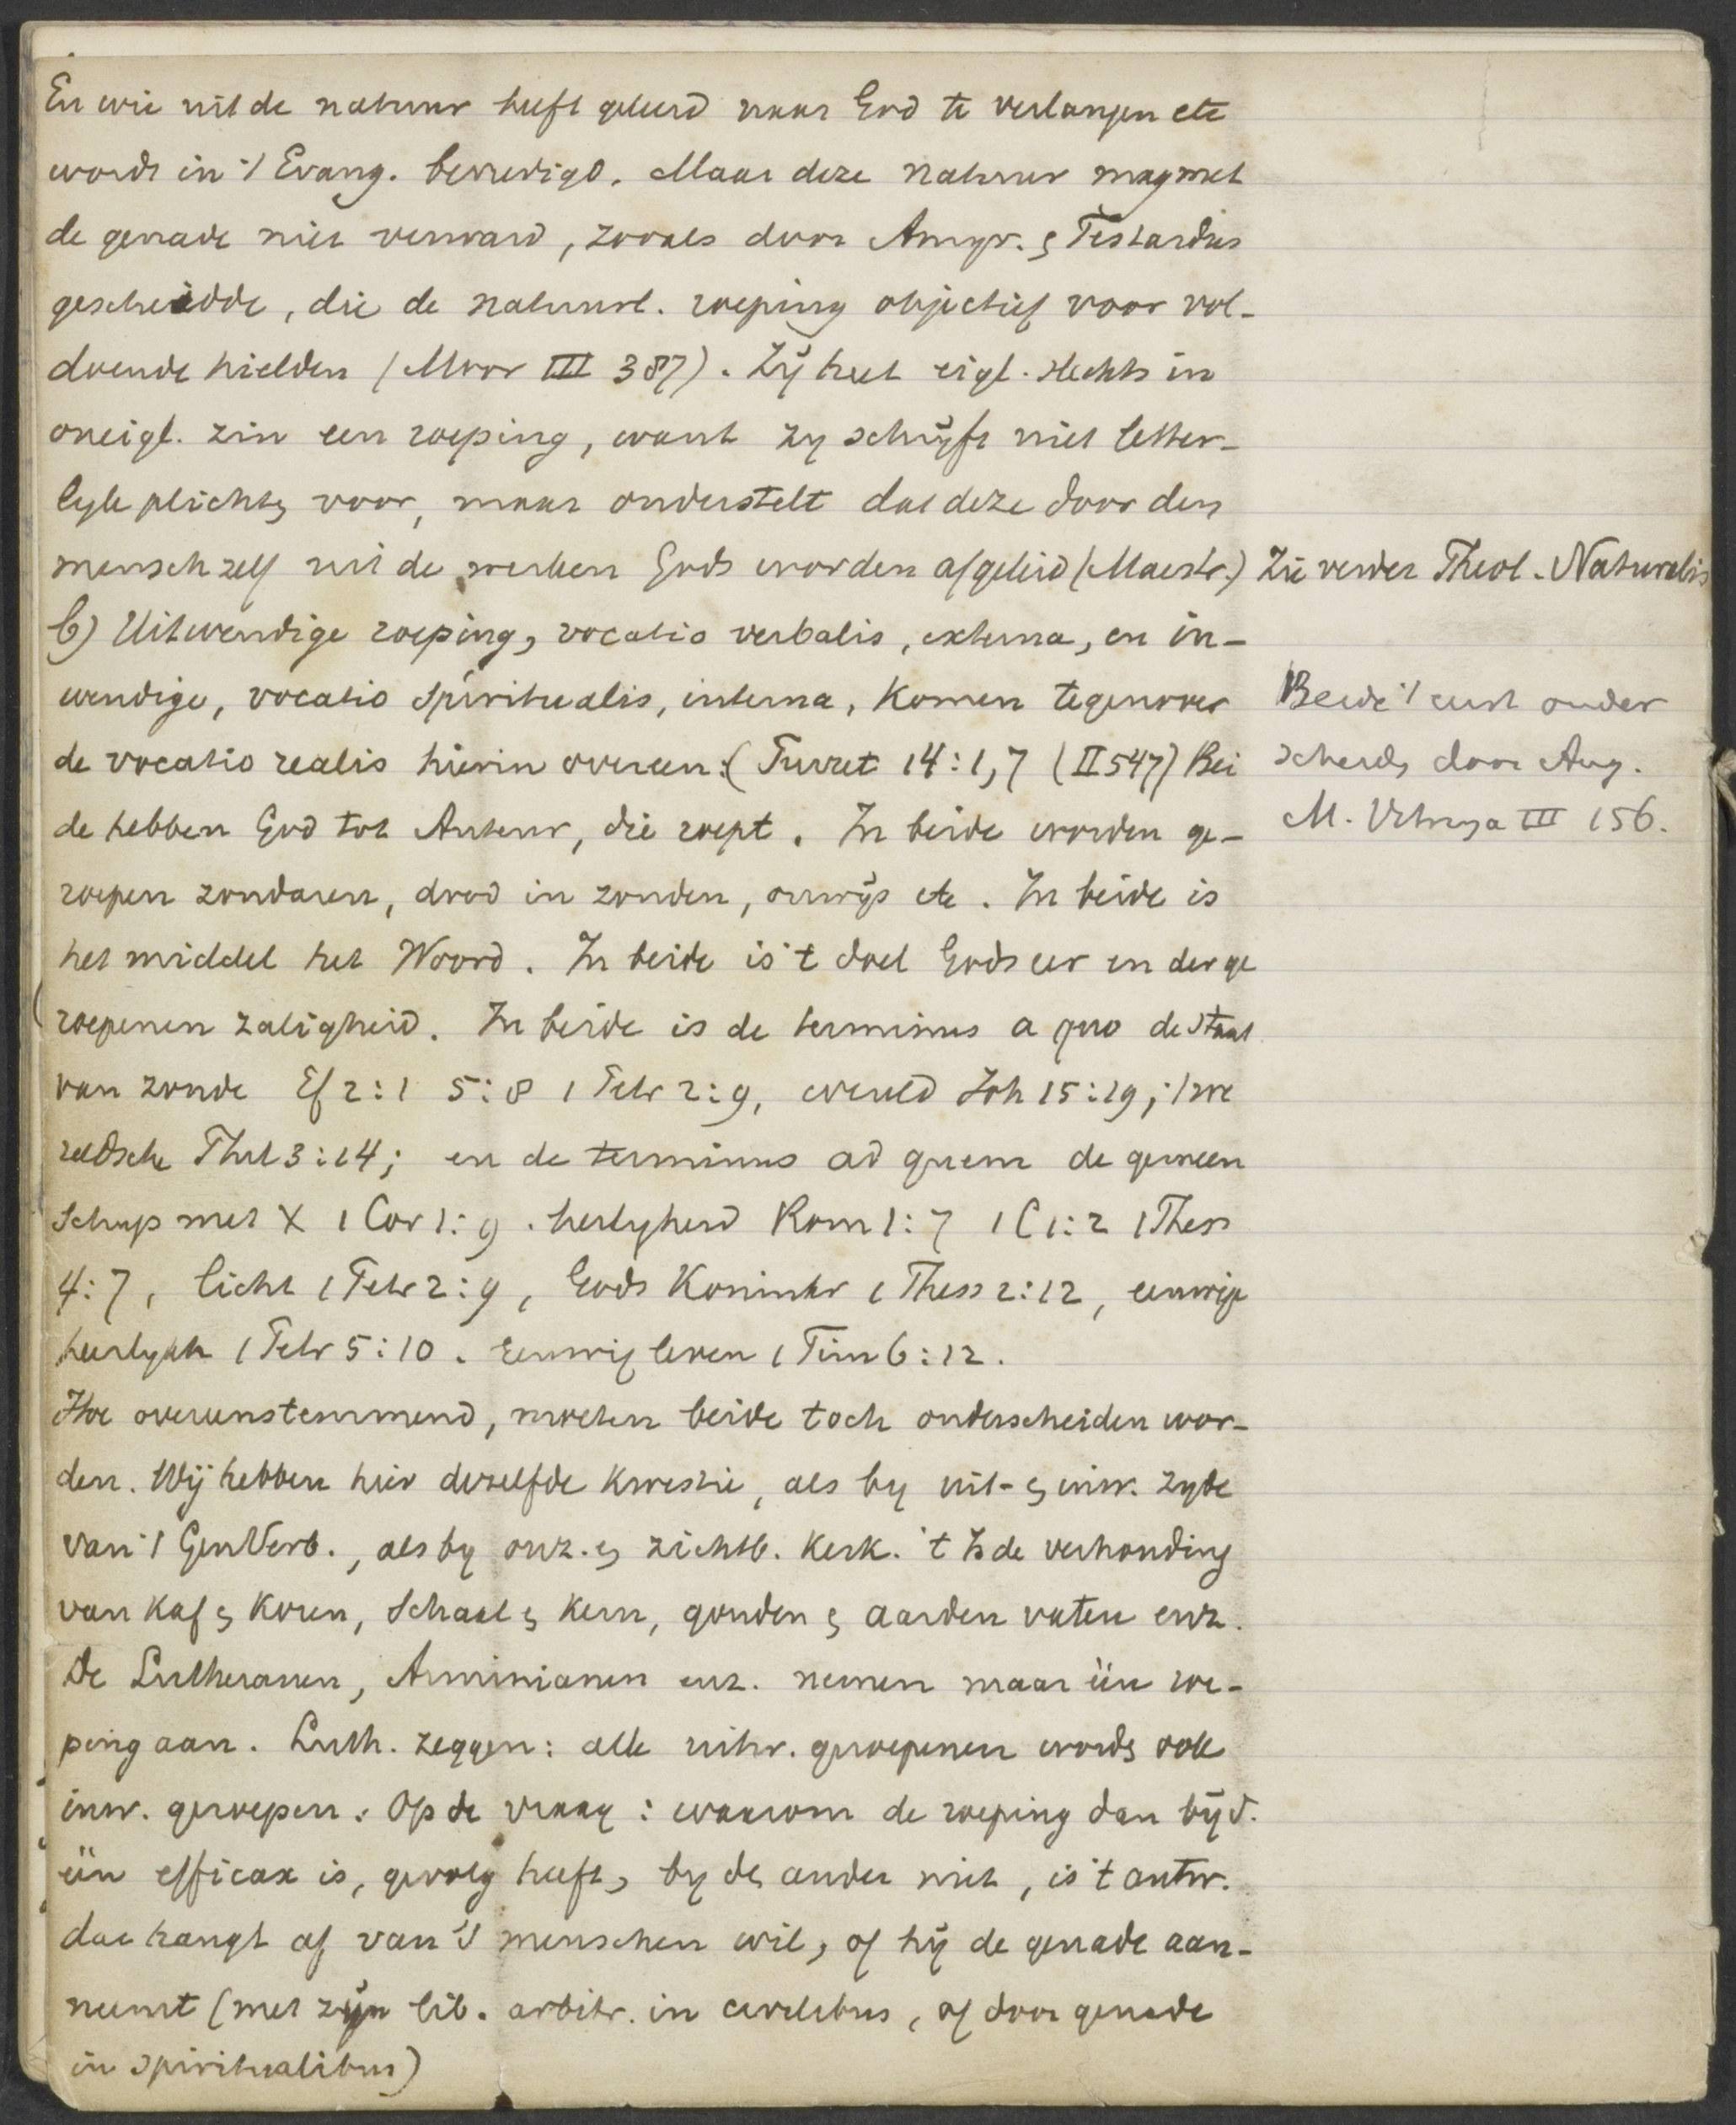 En wie uit de natuur heeft geleerd naar God te verlangen etc
wordt in 't Evang. bevredigd. Maar deze natuur mag met
de genade niet verward, zooals door Amyr. & Testardus
gescheidde, die de natuurl. roeping objectief voor vol-
doende hielden (Moor III 387). Zij heet eigl. slechts in
oneigl. zin een roeping, want zy schrijft niet letter-
lyk plichten voor, maar onderstelt dat deze door den
mensch zelf uit de werken Gods worden afgeleid (Maestr.)
Zie verder Theol. Naturalis
b) Uitwendige roeping, vocatio verbalis, externa, en in-
wendige, vocatio spiritualis, interna, komen tegenover
de vocatio realis hierin overeen: (Turret 14:1,7 (II 547) Bei
de hebben God tot Auteur, die roept. In beide worden ge-
roepen zondaren, dood in zonden, onwijs etc. In beide is
het middel het Woord. In beide is 't doel Gods eer en der ge
roepenen zaligheid. In beide is de terminus a quo de staat
van zonde Ef 2:1 5:8 1 Petr 2:9, wereld Joh 15:19; 't we
reldsche Phil 3:14; en de terminus ad quem de gemeen
schap met X 1 Cor 1:9. heilygheid Rom 1:7 1 C 1:2 1 Thess
4:7, licht 1 Petr 2:9, Gods Koninkr 1 Thess 2:12, eeuwige
heerlykh 1 Petr 5:10. Eeuwig leven 1 Tim 6:12.
Beide 't eerst onder
scheid, door Aug.
M. Vitringa III 156.
Hoe overeenstemmend, moeten beide toch onderscheiden wor-
den. Wij hebben hier dezelfde kwestie, als by uit- & inw. zyde
van 't GenVerb., als by onz. & zichtb. Kerk. 't Is de verhouding
van Kaf & Koren, Schaal & Kern, gouden & aarden vaten enz.
De Lutheranen, Arminianen enz. nemen maar één roe-
ping aan. Luth. zeggen: alle uitw. geroepenen word, ook
inw. geroepen. Op de vraag: waarom de roeping dan bij d.
één efficax is, gevolg heeft, by de, ander niet, is 't antw.
dat hangt af van 's menschen wil, of hij de genade aan-
neemt (met zijn lib. arbitr. in civilibus, of door genade
in spiritualibus)